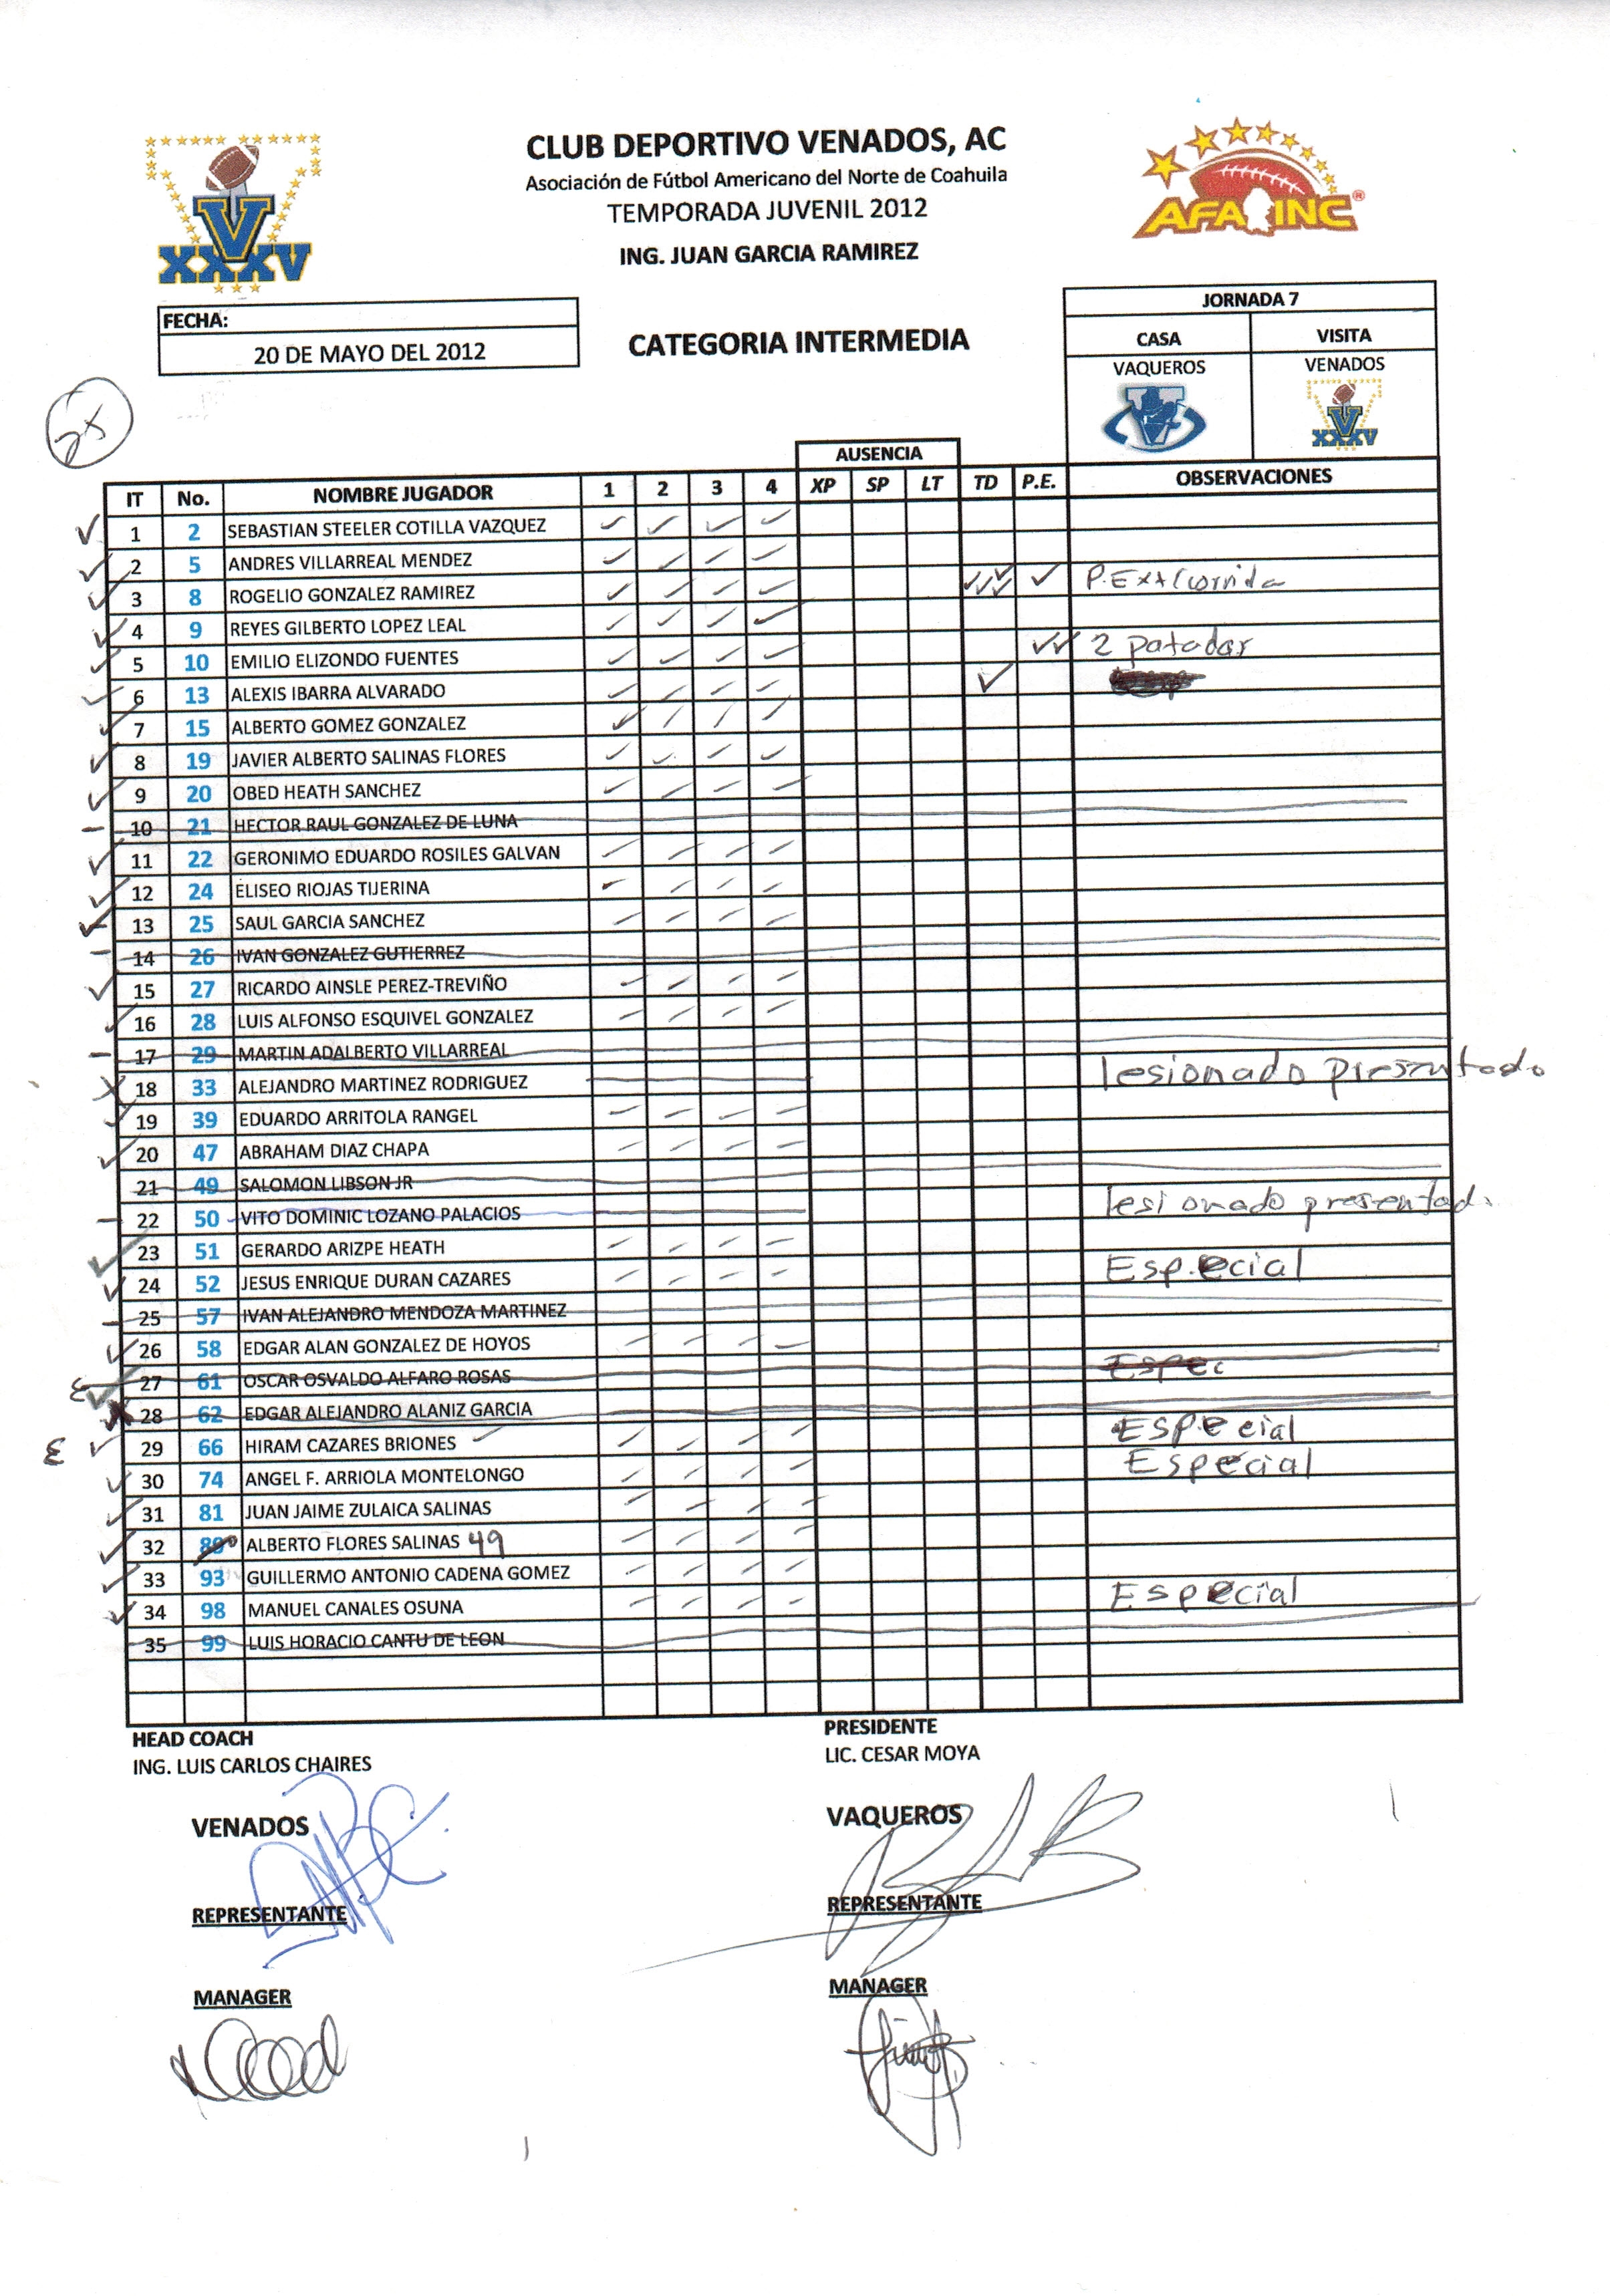 CLUB DEPORTIVO VENADOS, AC
Asociación de Fútbol Americano del Norte de Coahuila
TEMPORADA JUVENIL 2012
ING. JUAN GARCIA RAMIREZ
V
XXXV
AFA INC®
FECHA:
20 DE MAYO DEL 2012
CATEGORIA INTERMEDIA
JORNADA 7
CASA VISITA
VAQUEROS VENADOS
V
XXXV
AUSENCIA
IT No. NOMBRE JUGADOR 1 2 3 4 XP SP LT TD P.E. OBSERVACIONES
1 2 SEBASTIAN STEELER COTILLA VAZQUEZ
2 5 ANDRES VILLARREAL MENDEZ
3 8 ROGELIO GONZALEZ RAMIREZ P.Ext Corrida
4 9 REYES GILBERTO LOPEZ LEAL
5 10 EMILIO ELIZONDO FUENTES 2 patadas
6 13 ALEXIS IBARRA ALVARADO
7 15 ALBERTO GOMEZ GONZALEZ
8 19 JAVIER ALBERTO SALINAS FLORES
9 20 OBED HEATH SANCHEZ
10 21 HECTOR RAUL GONZALEZ DE LUNA
11 22 GERONIMO EDUARDO ROSILES GALVAN
12 24 ELISEO RIOJAS TIJERINA
13 25 SAUL GARCIA SANCHEZ
14 26 IVAN GONZALEZ GUTIERREZ
15 27 RICARDO AINSLE PEREZ-TREVIÑO
16 28 LUIS ALFONSO ESQUIVEL GONZALEZ
17 29 MARTIN ADALBERTO VILLARREAL
18 33 ALEJANDRO MARTINEZ RODRIGUEZ lesionado presentado
19 39 EDUARDO ARRITOLA RANGEL
20 47 ABRAHAM DIAZ CHAPA
21 49 SALOMON LIBSON JR
22 50 VITO DOMINIC LOZANO PALACIOS lesionado presentado
23 51 GERARDO ARIZPE HEATH
24 52 JESUS ENRIQUE DURAN CAZARES Especial
25 57 IVAN ALEJANDRO MENDOZA MARTINEZ
26 58 EDGAR ALAN GONZALEZ DE HOYOS
27 61 OSCAR OSVALDO ALFARO ROSAS Espec
28 62 EDGAR ALEJANDRO ALANIZ GARCIA
29 66 HIRAM CAZARES BRIONES Especial
30 74 ANGEL F. ARRIOLA MONTELONGO Especial
31 81 JUAN JAIME ZULAICA SALINAS
32 ALBERTO FLORES SALINAS 49
33 93 GUILLERMO ANTONIO CADENA GOMEZ
34 98 MANUEL CANALES OSUNA Especial
35 99 LUIS HORACIO CANTU DE LEON
HEAD COACH PRESIDENTE
ING. LUIS CARLOS CHAIRES LIC. CESAR MOYA
VENADOS VAQUEROS
REPRESENTANTE REPRESENTANTE
MANAGER MANAGER